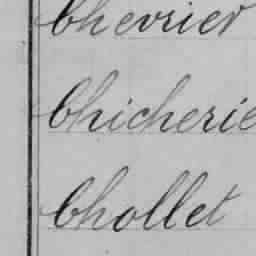 Chevrier
Chicherie
Chollet